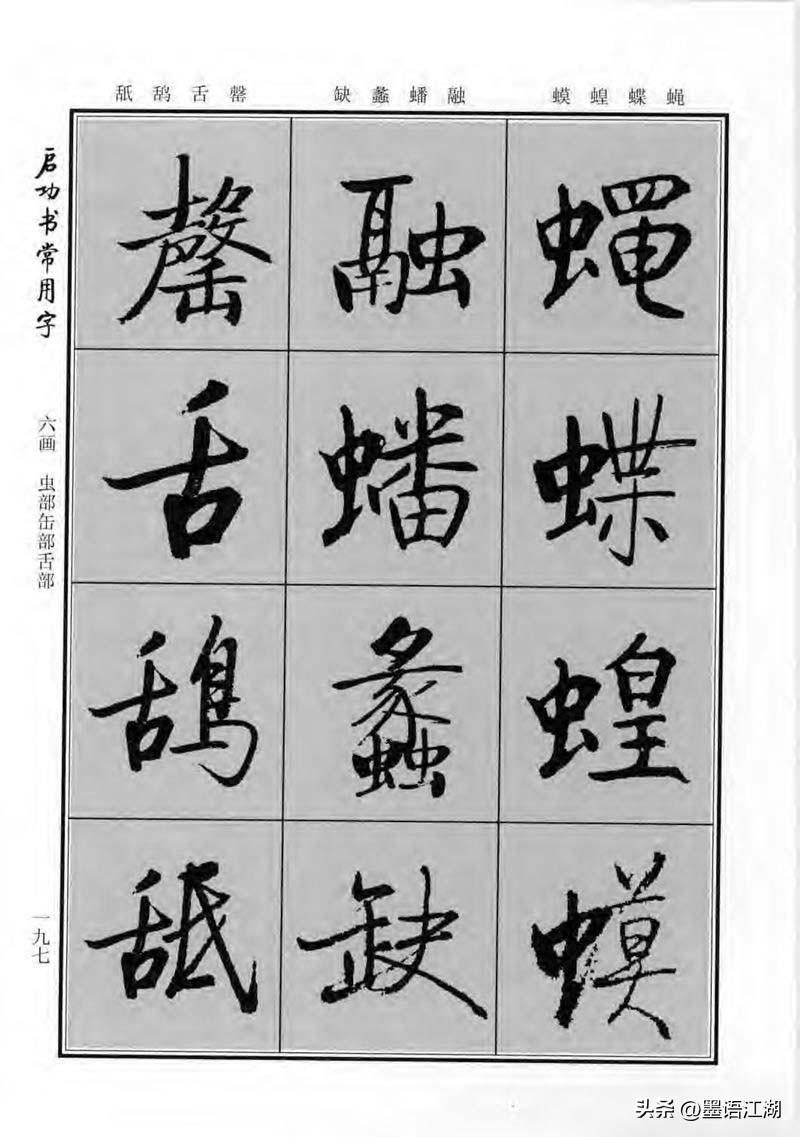 蝇蝶蝗蟆
融蟠蠡缺
罄舌鸹舐
蝇蝶蝗蟆
融蟠蠡缺
罄舌鸹舐
启功书常用字
六画 虫部缶部舌部
一九七
头条 @墨语江湖